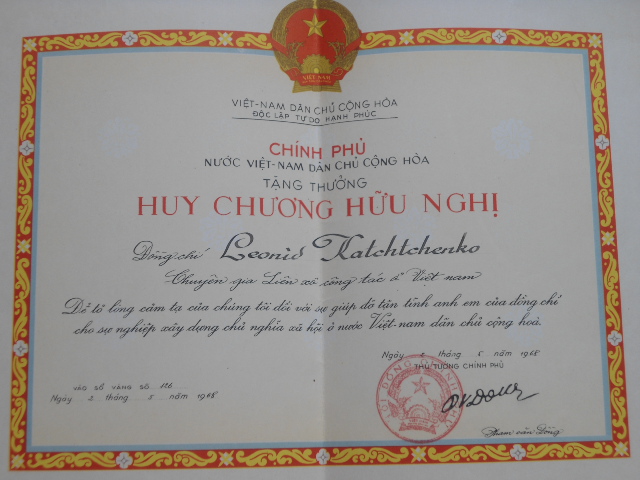 VIỆT NAM
VIỆT-NAM DÂN CHỦ CỘNG HÒA
ĐỘC LẬP TỰ DO HẠNH PHÚC
CHÍNH PHỦ
NƯỚC VIỆT-NAM DÂN CHỦ CỘNG HÒA
TẶNG THƯỞNG
HUY CHƯƠNG HỮU NGHỊ
Đồng chí Leonid Kalchtchenko
Chuyên gia Liên xô công tác ở Việt nam
Để tỏ lòng cảm tạ của chúng tôi đối với sự giúp đỡ tận tình anh em của đồng chí
cho sự nghiệp xây dựng chủ nghĩa xã hội ở nước Việt-nam dân chủ cộng hoà.
Ngày 2 tháng 5 năm 1968
THỦ TƯỚNG CHÍNH PHỦ
VÀO SỔ VÀNG SỐ 126
Ngày 2 tháng 5 năm 1968
Phạm văn Đồng